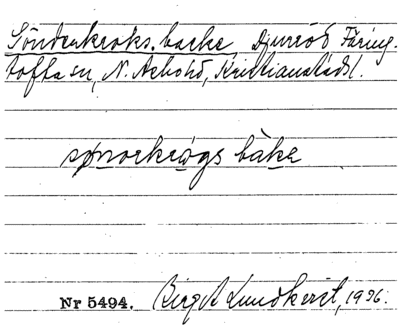 Sönderkroks.backe, Djurröd Färing-
tofta sn, N. Åsbohd, Kristianstadsl.
sønorkrogs bàka
Nr 5494. Birgit Lundkvist, 1936.